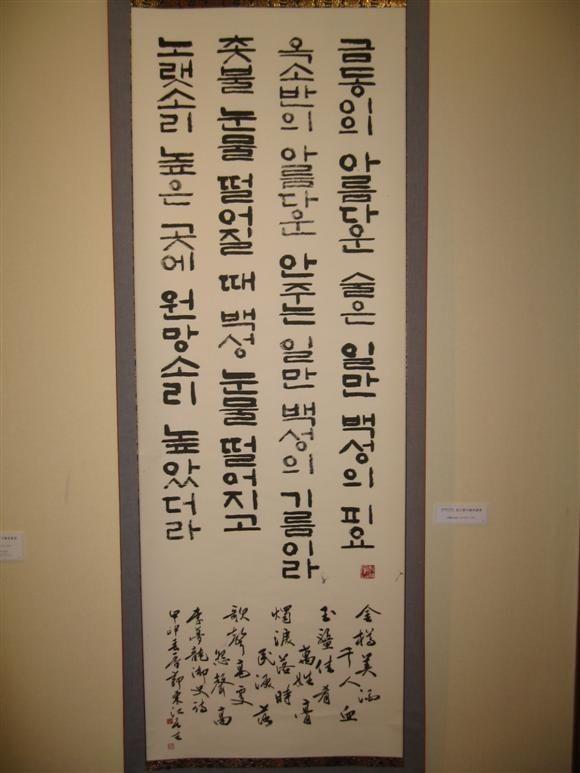 금동이의 아름다운 술은 일만 백성의 피요
옥소반의 아름다운 안주는 일만 백성의 기름이라
촛불 눈물 떨어질 때 백성 눈물 떨어지고
노랫소리 높은 곳에 원망소리 높았더라
金樽美酒
千人血
玉盤佳肴
萬姓膏
燭淚落時
民淚落
歌聲高處
怨聲高
李夢龍御史詩
甲申春香節東江